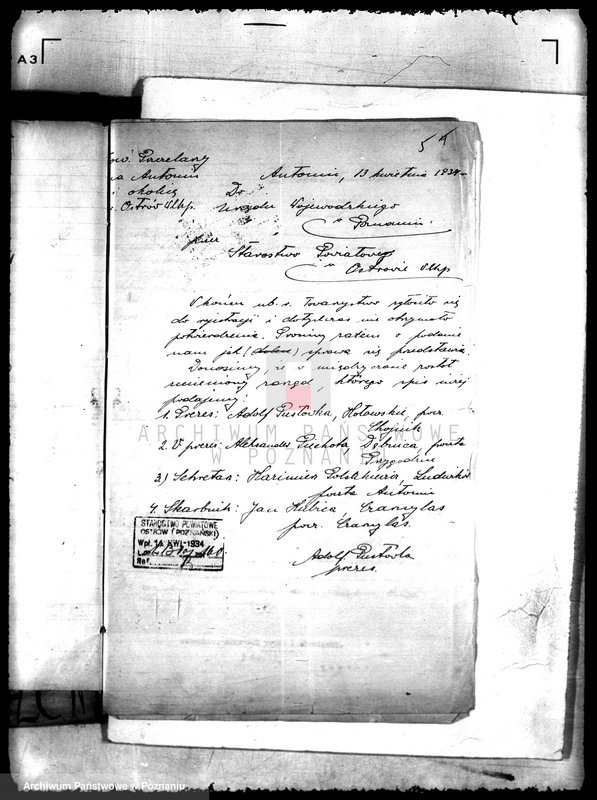 A3
54
Tow. Pszczelarzy
na Antonin
i okolicę
p. Ostrów Wlkp.
Antonin, 13 kwietnia 1934 r.
Do
Urzędu Wojewódzkiego
w Poznaniu
przez
Starostwo Powiatowe
w Ostrowie Wlkp
W końcu ub. r. Towarzystwo zgłosiło się
do rejestracji i dotychczas nie otrzymało
potwierdzenia. Prosimy zatem o podanie
nam jak sprawa się przedstawia
Donosimy, że w międzyczasie został
zmieniony zarząd, którego spis niżej
podajemy:
1. Prezes: Adolf Pustówka, Hołowskie, pow.
2. V prezes: Aleksander Piechota Dębnica poczta
Przygodzice
3.) Sekretarz: Kazimierz Ludwików
poczta Antonin
4. Skarbnik: Jan Kubica, Czarnylas
pow. Czarnylas.
Adolf Pustówka
prezes.
STAROSTWO POWIATOWE
OSTRÓW (POZNAŃSKI)
Wpł. 14. KWI. 1934
L.
Ref.
ARCHIWUM PAŃSTWOWE
W POZNANIU
Archiwum Państwowe w Poznaniu